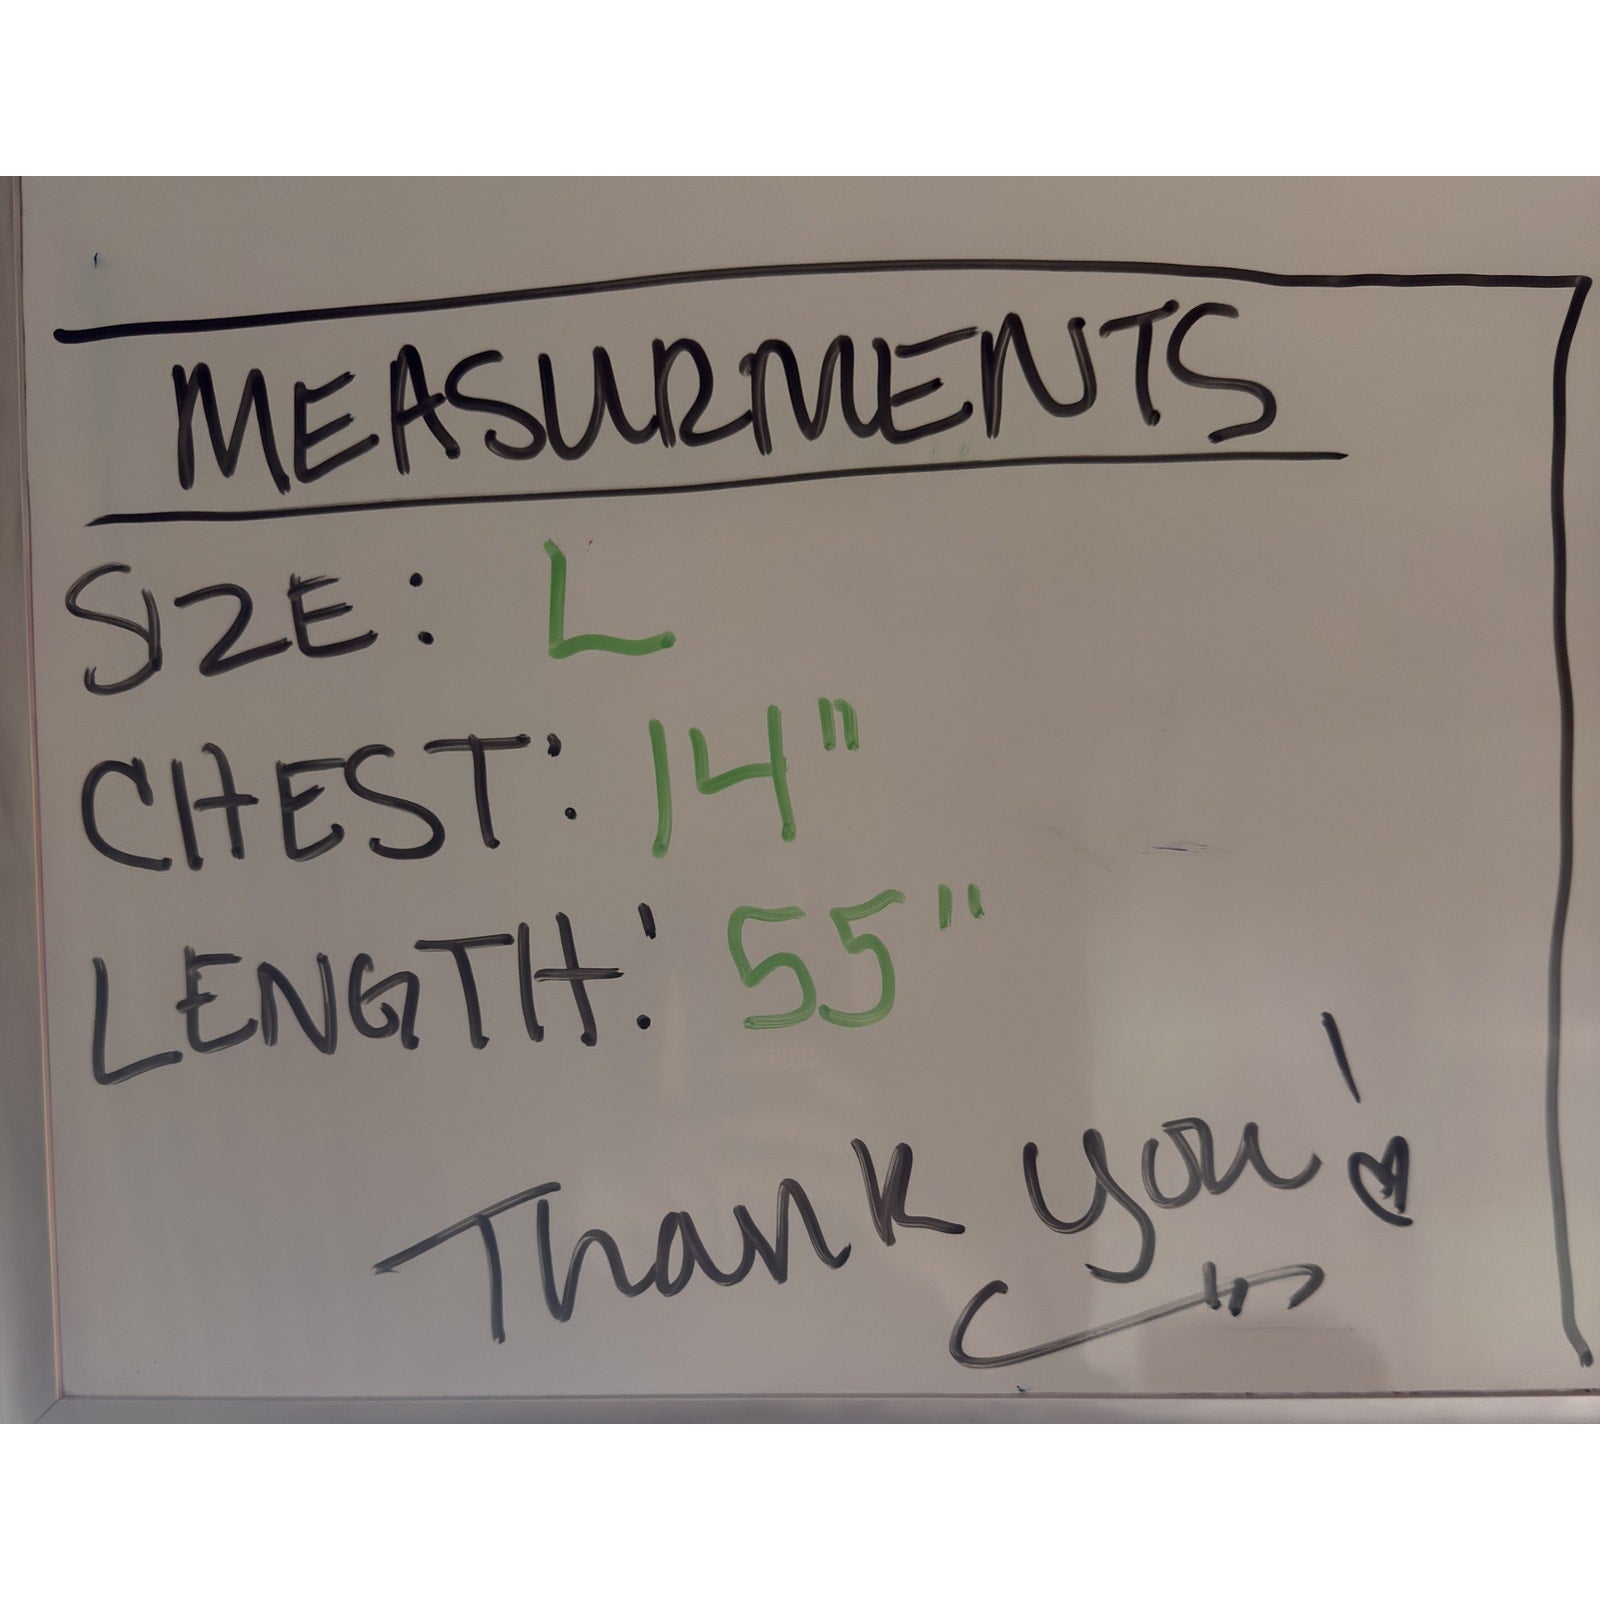 MEASURMENTS
SIZE: L
CHEST: 14"
LENGTH: 55"
Thank you!